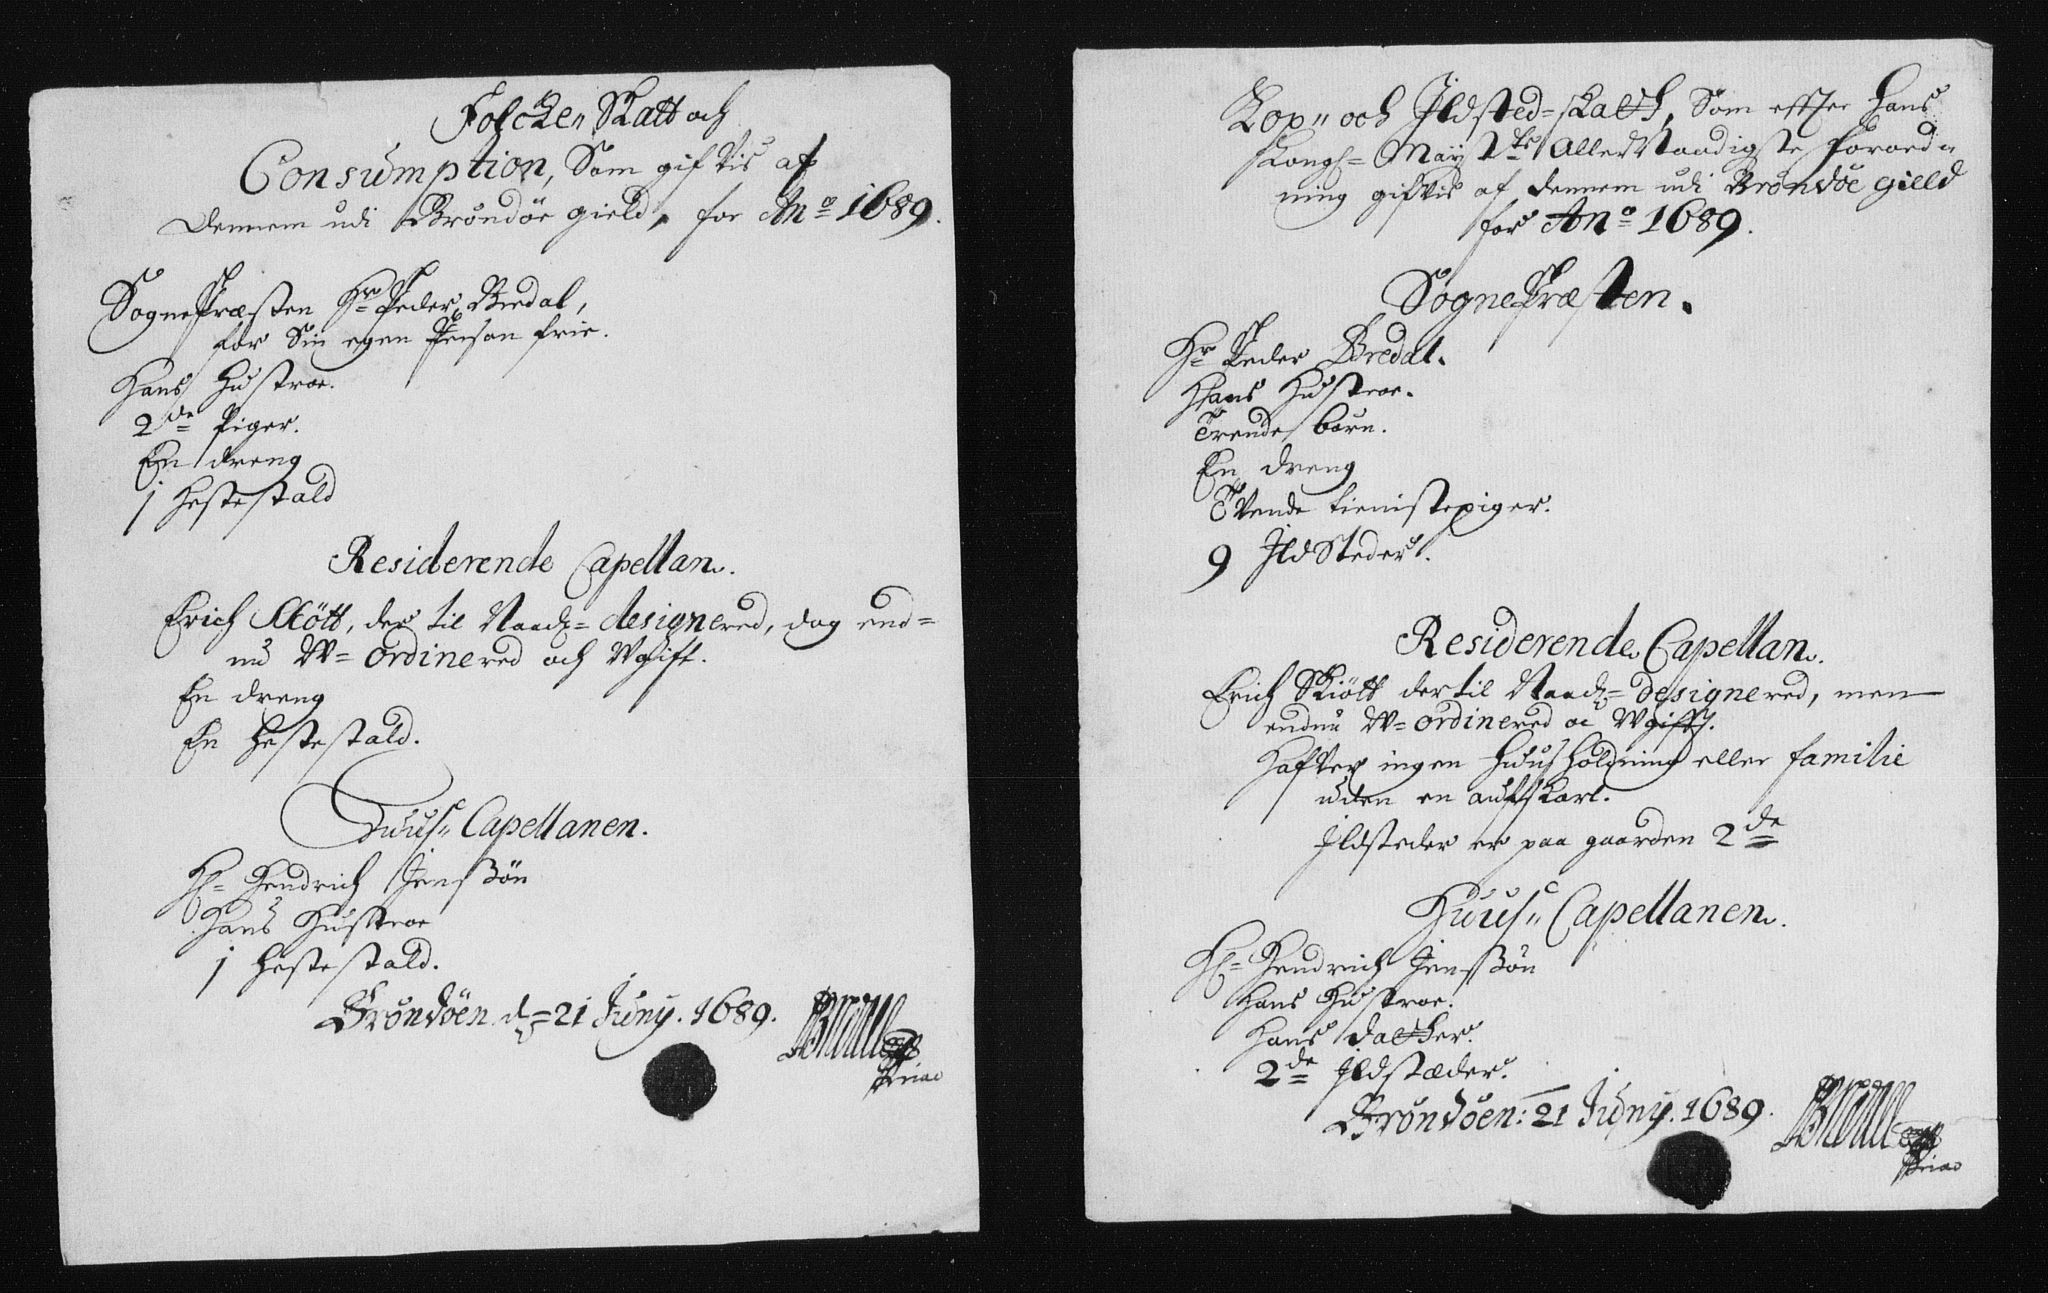 Folcke„ Skatt och
Consumption, Som gifvis af
dennem udi Brøndøe gield, for An̄o 1689.
SognePræsten Hr Peder Bredal,
for Sin egen Person frie.
Hans Hustroe.
2de Piger.
En dreng
1 Hestestald
Residerende Capellan.
Erich Skött, der til Naad= designered, dog end=
nu W=ordinered och Wgift.
En dreng
En Hestestald.
Huus„ Capellanen.
H= Hendrich Jenssön
Hans Hustroe
1 Hestestald.
Brøndöen d= 21 Juny. 1689.
PBredal
Kop„ och Ildsted=skatt, Som effter Hans
Kongl= Maytts Allernaadigste forord„
ning gifvis af dennem udi Brøndöe gield
for An̄o 1689.
SognePræsten.
Hr Peder Bredal.
Hans Hustroe.
Trende börn.
En dreng
Tvende tienistepiger.
9 IldSteder.
Residerende Capellan.
Erich Skiött dertil Naad= designered, men
endnu W=ordinered oc Wgifft.
Hafver ingen Huusholdning eller familie
uden en aufskarl.
Ildsteder er paa gaarden 2de
Huus„ Capellanen.
H= Hendrich Jenssön
Hans Hustroe.
Hans datter.
2de Ildstæder.
Brøndöen: 21 Juny. 1689.
PBredal